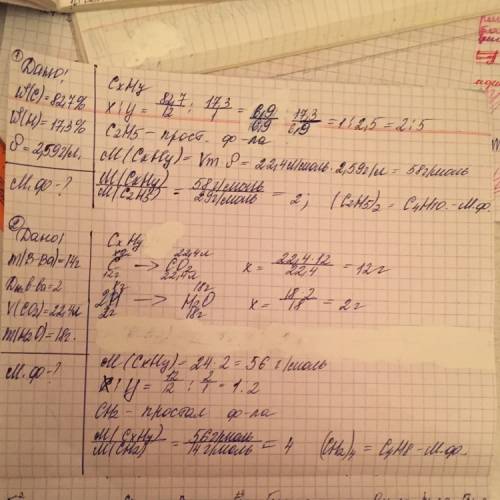 ① Дано:
W(C)=82,7%
W(H)=17,3%
ρ=2,59г/л.
М.ф-?
CxHy
X:Y = 82,7/12 : 17,3/1 = 6,9/6,9 : 17,3/6,9 = 1:2,5 = 2:5
C2H5 – прост. ф-ла
M(CxHy) = Vm ρ = 22,4л/моль · 2,59г/л = 58г/моль
M(CxHy)/M(C2H5) = 58г/моль/29г/моль = 2; (C2H5)2 = C4H10 – М.ф.
② Дано:
m(В-ва)=14г
в-ва=2
V(CO2)=22,4л
m(H2O)=18г.
М.ф-?
CxHy
xг 22,4л
C → CO2 x = 22,4·12/22,4 = 12г
12г 22,4л
xг 18г
2H → H2O x = 18·2/18 = 2г
2г 18г
M(CxHy) = 24·2 = 56 г/моль
X:Y = 12/12 : 2/1 = 1:2
CH2 – простая ф-ла
M(CxHy)/M(CH2) = 56г/моль/14г/моль = 4 (CH2)4 = C4H8 – М.ф.